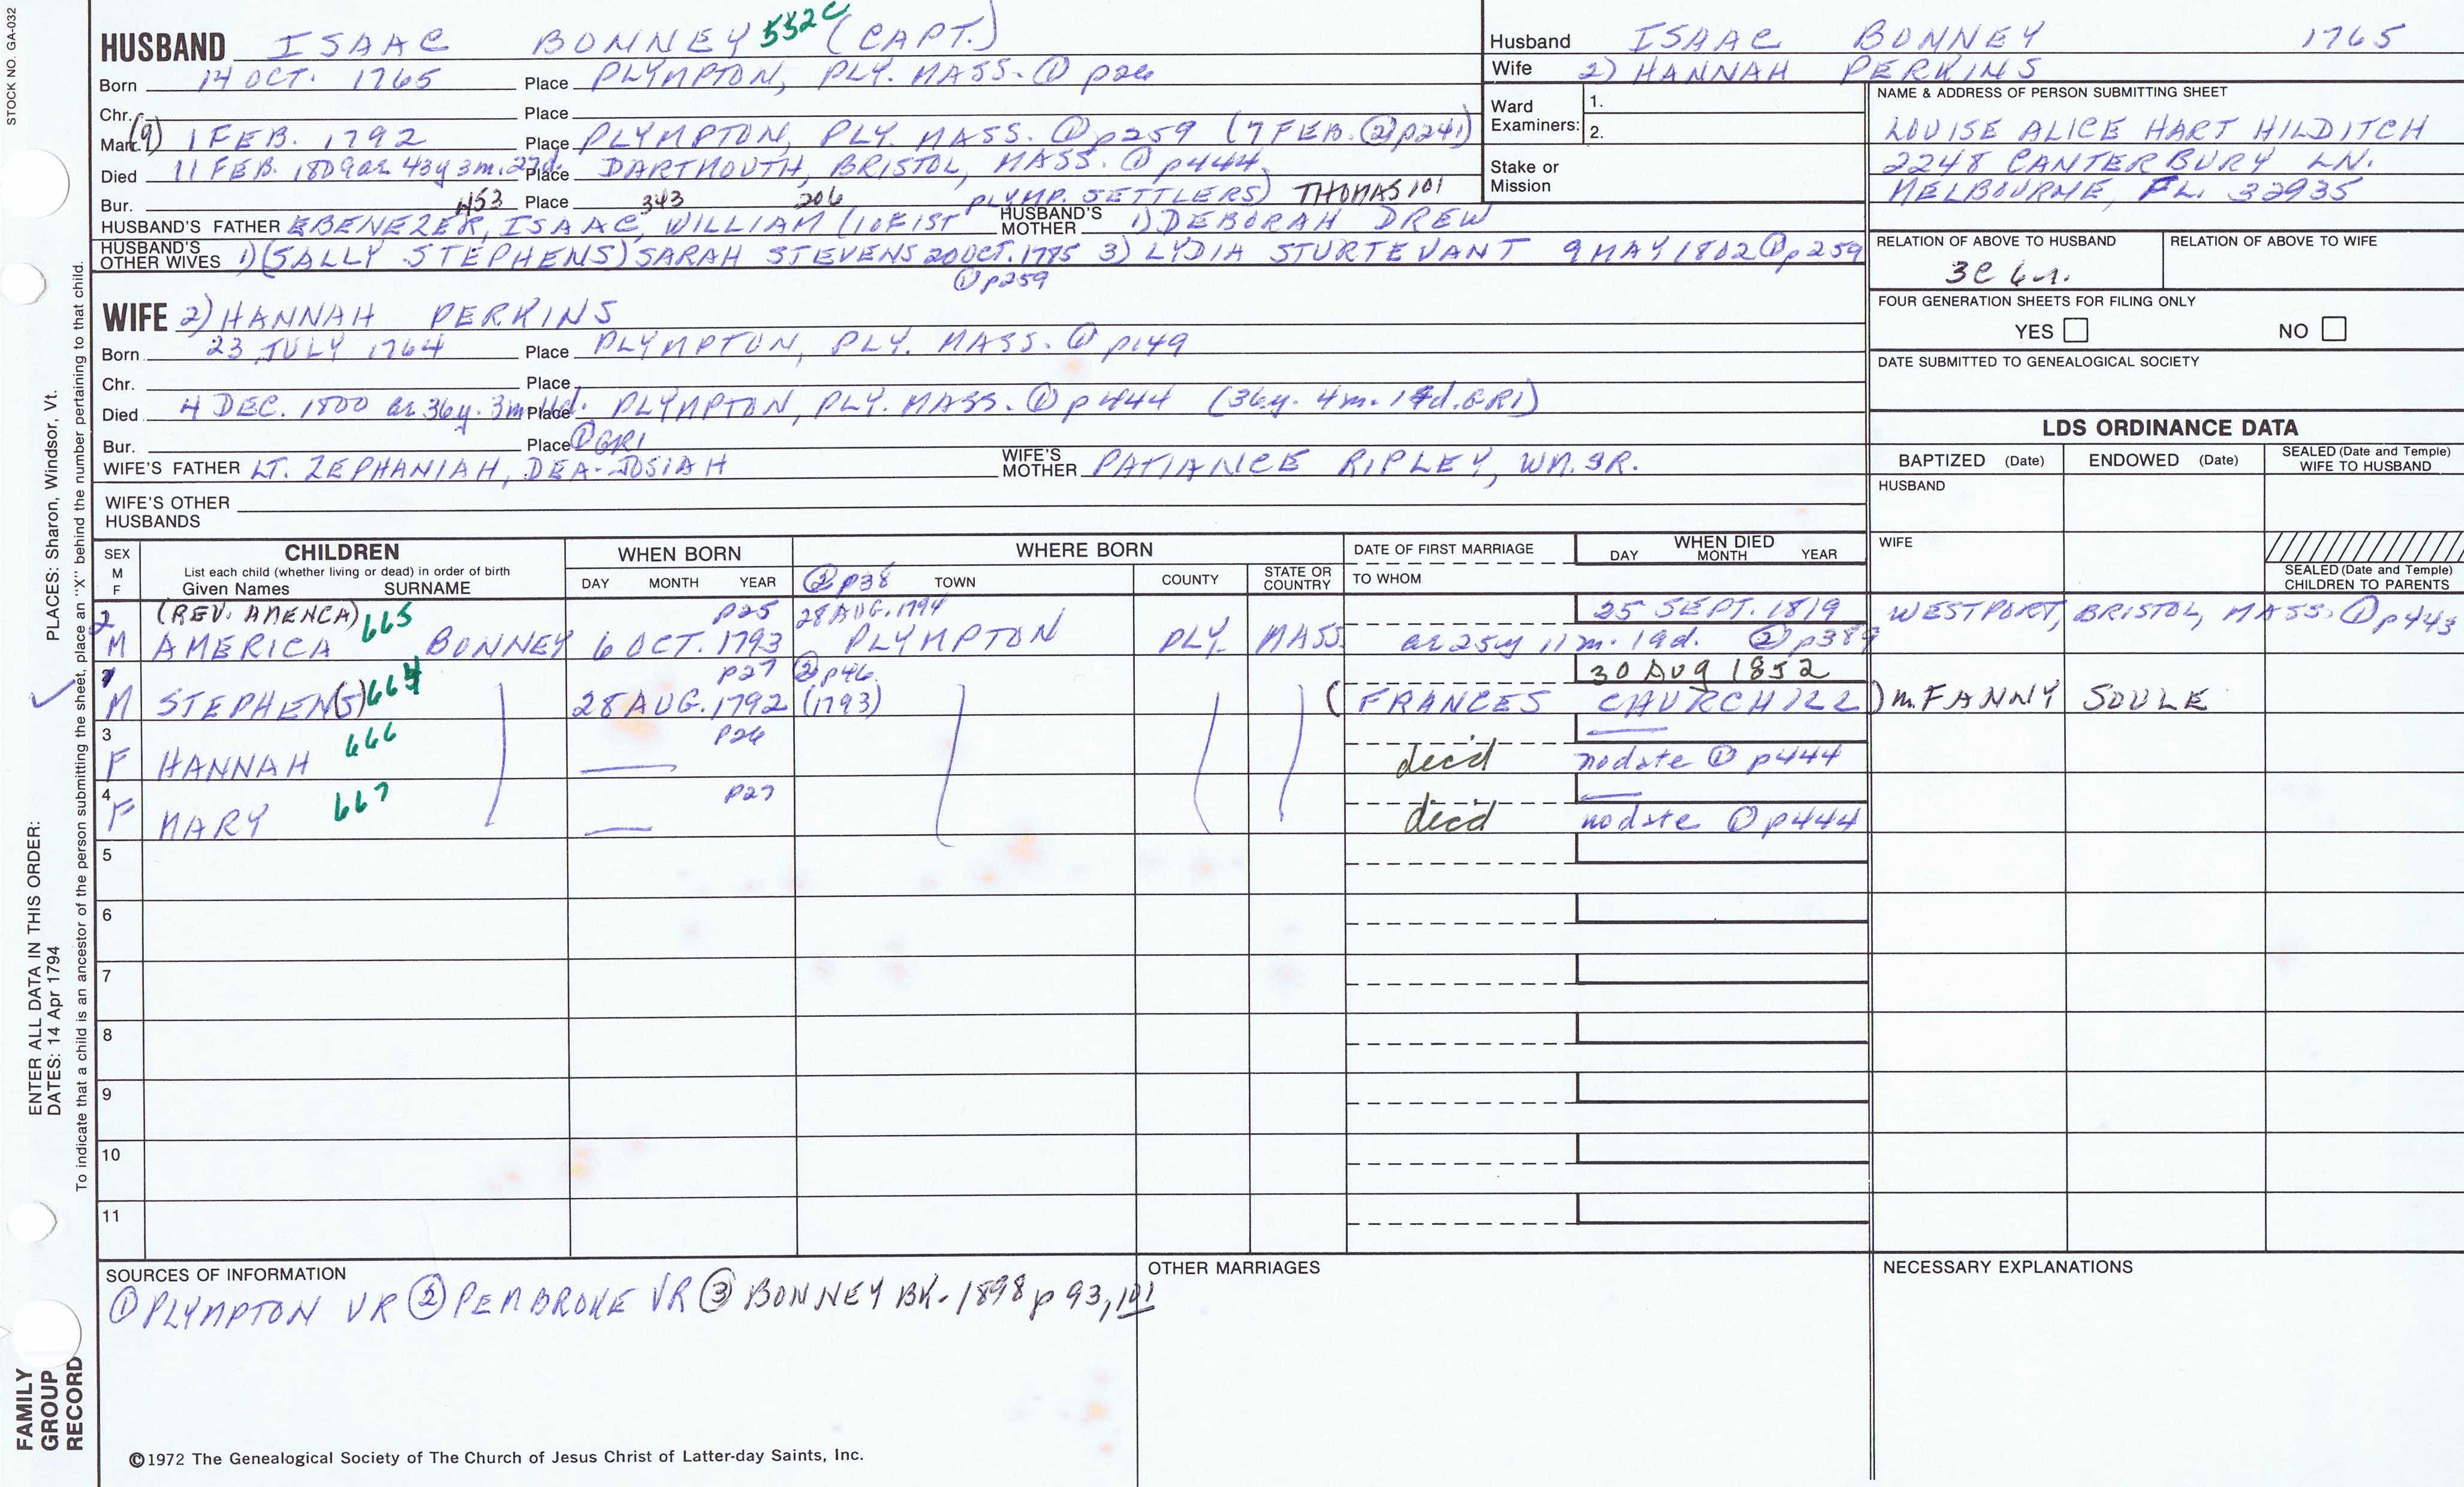 STOCK NO. GA-032
HUSBAND ISAAC BONNEY 552C (CAPT.)
Born 14 OCT. 1765 Place PLYMPTON, PLY. MASS. ① p26
Chr. Place
Marr. (9) 1 FEB. 1792 Place PLYMPTON, PLY. MASS. ① p259 (7 FEB. ② p241)
Died 11 FEB. 1809 ae 43y 3m. 27d. Place DARTMOUTH, BRISTOL, MASS. ① p444
Bur. 453 Place 343 206 PLYMP. SETTLERS) THOMAS 101
HUSBAND'S FATHER EBENEZER, ISAAC, WILLIAM (10F1ST HUSBAND'S MOTHER 1) DEBORAH DREW
HUSBAND'S OTHER WIVES 1) (SALLY STEPHENS) SARAH STEVENS 20 OCT. 1785 3) LYDIA STURTEVANT 9 MAY 1802 ① p259
① p259
WIFE 2) HANNAH PERKINS
Born 23 JULY 1764 Place PLYMPTON, PLY. MASS. ① p149
Chr. Place
Died 4 DEC. 1800 ae 36y. 3m. 11d. Place PLYMPTON, PLY. MASS. ① p444 (36y. 4m. 1 d. GR1)
Bur. Place ① GR1
WIFE'S FATHER LT. ZEPHANIAH, DEA. JOSIAH WIFE'S MOTHER PATIANCE RIPLEY, WM. SR.
WIFE'S OTHER HUSBANDS
Husband ISAAC BONNEY 1765
Wife 2) HANNAH PERKINS
Ward Examiners: 1.
2.
Stake or Mission
NAME & ADDRESS OF PERSON SUBMITTING SHEET
LOUISE ALICE HART HILDITCH
2248 CANTERBURY LN.
MELBOURNE, FL. 32935
RELATION OF ABOVE TO HUSBAND RELATION OF ABOVE TO WIFE
3C 6r.
FOUR GENERATION SHEETS FOR FILING ONLY
YES NO
DATE SUBMITTED TO GENEALOGICAL SOCIETY
LDS ORDINANCE DATA
BAPTIZED (Date) ENDOWED (Date) SEALED (Date and Temple) WIFE TO HUSBAND
HUSBAND
WIFE
SEALED (Date and Temple) CHILDREN TO PARENTS
SEX M F CHILDREN WHEN BORN WHERE BORN DATE OF FIRST MARRIAGE WHEN DIED
List each child (whether living or dead) in order of birth
Given Names SURNAME DAY MONTH YEAR ② p38 TOWN COUNTY STATE OR COUNTRY TO WHOM DAY MONTH YEAR
2 (REV. AMENCA) 665 p25 28 AUG. 1794 25 SEPT. 1819 WESTPORT, BRISTOL, MASS. ① p443
M AMERICA BONNEY 6 OCT. 1793 PLYMPTON PLY. MASS ae 25y 11m. 19d. ② p389
1 664 p27 ② p46 30 Aug 1852
M STEPHEN(S) 28 AUG. 1792 (1793) (FRANCES CHURCHILL) m. FANNY SOULE
3 666 p26
F HANNAH decd no date ① p444
4 667 p27
F MARY decd no date ① p444
5
6
7
8
9
10
11
SOURCES OF INFORMATION
① PLYMPTON VR ② PEMBROKE VR ③ BONNEY BK. 1898 p 93, 101
OTHER MARRIAGES
NECESSARY EXPLANATIONS
©1972 The Genealogical Society of The Church of Jesus Christ of Latter-day Saints, Inc.
ENTER ALL DATA IN THIS ORDER:
DATES: 14 Apr 1794
PLACES: Sharon, Windsor, Vt.
To indicate that a child is an ancestor of the person submitting the sheet, place an "X" behind the number pertaining to that child.
FAMILY
GROUP
RECORD